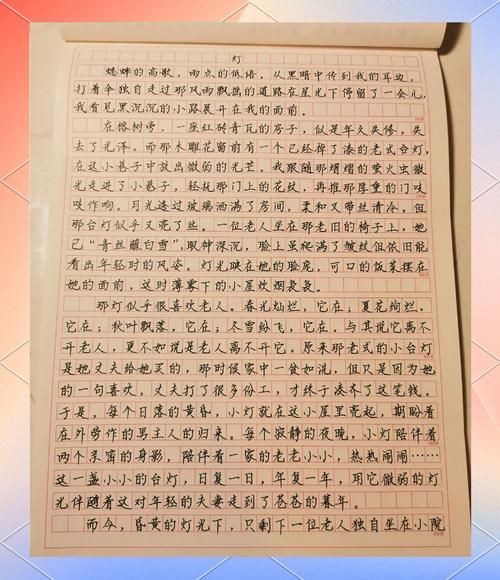 灯
蟋蟀的高歌，雨点的低语，从黑暗中传到我的耳边，
打着伞独自走过那风雨飘摇的道路在星光下停留了一会儿，
我看见黑沉沉的小路展开在我的面前。
在榕树旁，一座红砖青瓦的房子，似是年久失修，失
去了光泽。而那木雕花窗前有一个已经掉了漆的老式台灯，
在这小巷子中放出微弱的光芒。我跟随那熠熠的萤火虫微
光走进了小巷子，轻抚那门上的花纹，再推那厚重的门吱
吱作响。月光透过玻璃洒满了房间，柔和又带丝清冷，但
那台灯似乎又亮了些。一位老人坐在那老旧的椅子上，她
已“青丝蘸白雪”，眼神深沉，脸上虽爬满了皱纹但依旧能
看出年轻时的风姿。灯光映在她的脸庞，可口的饭菜摆在
她的面前，这时薄雾下的小屋炊烟袅袅。
那灯似乎很喜欢老人。春光灿烂，它在；夏花绚烂，
它在；秋叶飘落，它在；冬雪纷飞，它在。与其说它离不
开老人，更不如说是老人离不开它。原来那老式的小台灯
是她丈夫给她买的，那时候家中一贫如洗，但只是因为她
的一句喜欢，丈夫打了很多份工，才终于凑齐了这笔钱。
于是，每个日落的黄昏，小灯就在这小屋里亮起，期盼着
在外劳作的男主人的归来。每个寂静的夜晚，小灯陪伴着
两个亲密的身影，陪伴着一家的老老小小，热热闹闹……
这一盏小小的台灯，日复一日，年复一年，用它微弱的灯
光伴随着这对年轻的夫妻走到了苍苍的暮年。
而今，昏黄的灯光下，只剩下一位老人独自坐在小院